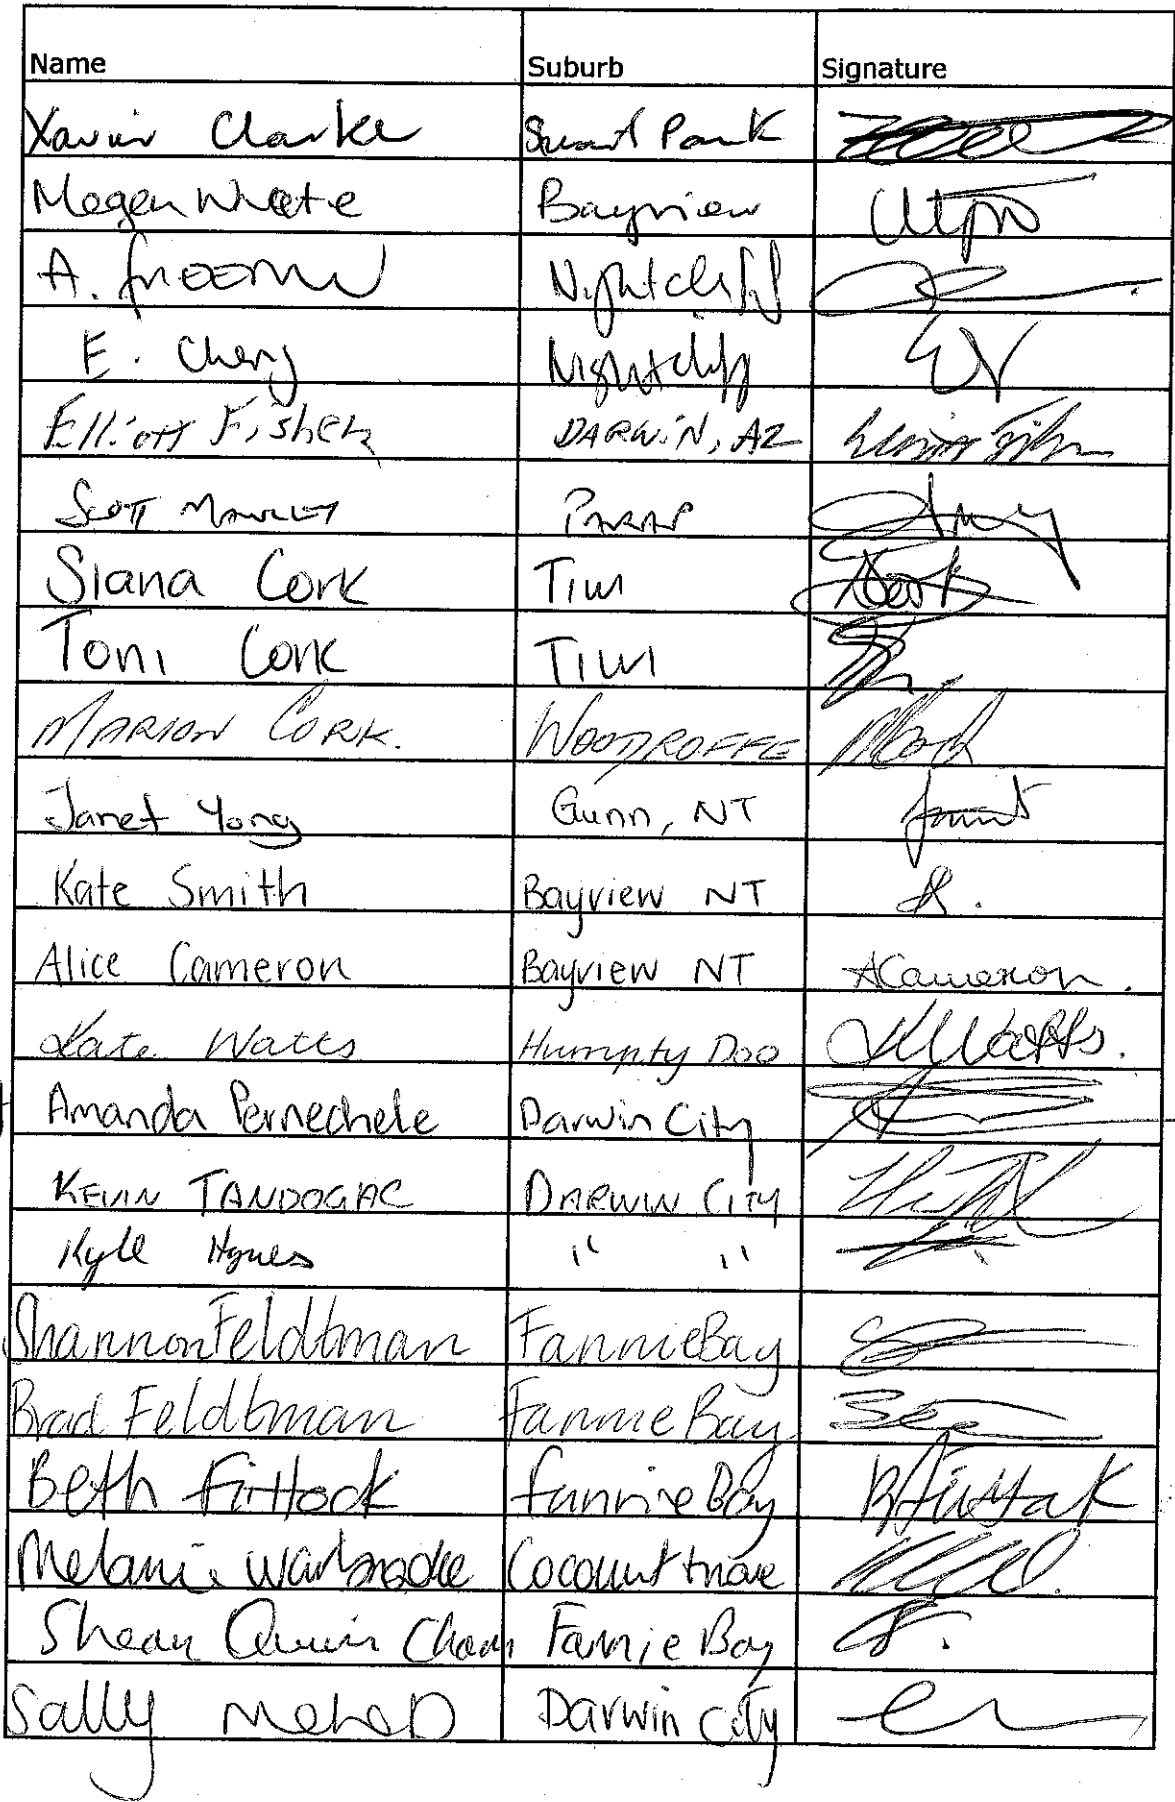 Name Suburb Signature
Xavier Clarke Stuart Park
Megan White Bayview
A. Nightcliff
E. Cheng Nightcliff
Elliott Fisher DARWIN, AZ
SCOTT PARAP
Siana Cork Tiwi
Toni Cork Tiwi
MARION CORK. WOODROFFE
Janet Yong Gunn, NT
Kate Smith Bayview NT
Alice Cameron Bayview NT ACameron.
Kate Watts Humpty Doo KWatts.
Amanda Pernechele Darwin City
KEVIN TANDOGAC DARWIN CITY
Kyle Hynes " "
Shannon Feldtman Fannie Bay
Brad Feldtman Fannie Bay
Beth Fittock Fannie Bay BFittock
Melanie Coconut Grove
Shean Quin Chan Fannie Bay
Sally Darwin City